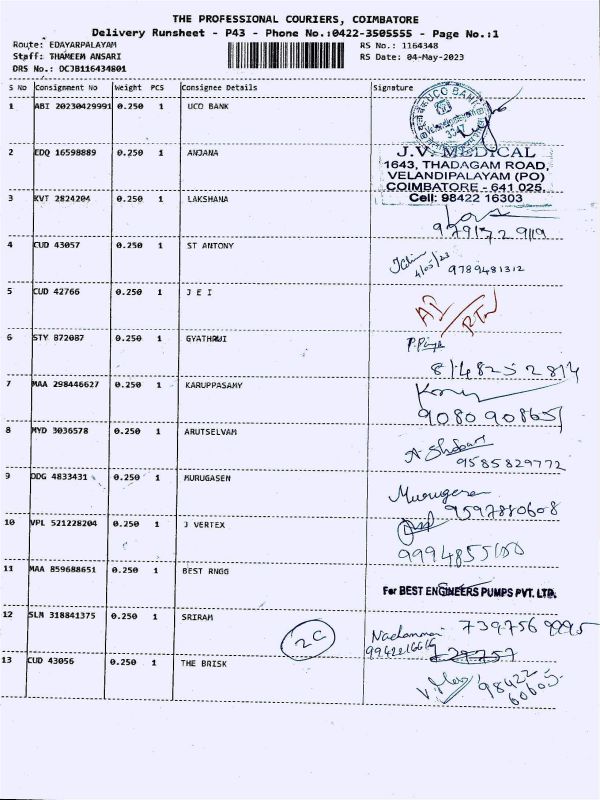 THE PROFESSIONAL COURIERS, COIMBATORE
Delivery Runsheet - P43 - Phone No.:0422-3505555 - Page No.:1
Route: EDAYARPALAYAM RS No.: 1164348
Staff: THAMEEM ANSARI RS Date: 04-May-2023
DRS No.: DCJB116434801
S No Consignment No Weight PCS Consignee Details Signature
1 ABI 20230429991 0.250 1 UCO BANK
UCO BANK
2 EDQ 16598889 0.250 1 ANJANA
J.V. MEDICAL
1643, THADAGAM ROAD,
VELANDIPALAYAM (PO)
COIMBATORE - 641 025.
Cell: 98422 16303
3 KVT 2824204 0.250 1 LAKSHANA
4 CUD 43057 0.250 1 ST ANTONY
4/05/23 9789481312
5 CUD 42766 0.250 1 J E I
6 STY 872087 0.250 1 GYATHRUI
P.Priya
8148252814
7 MAA 298446627 0.250 1 KARUPPASAMY
9080908651
8 MYD 3036578 0.250 1 ARUTSELVAM
9585829772
9 DDG 4833431 0.250 1 MURUGASEN
Murugesan
9597880608
10 VPL 521228204 0.250 1 J VERTEX
11 MAA 859688651 0.250 1 BEST RNGG
For BEST ENGINEERS PUMPS PVT. LTD.
12 SLM 318841375 0.250 1 SRIRAM
7397569995
13 CUD 43056 0.250 1 THE BRISK
98422
60605